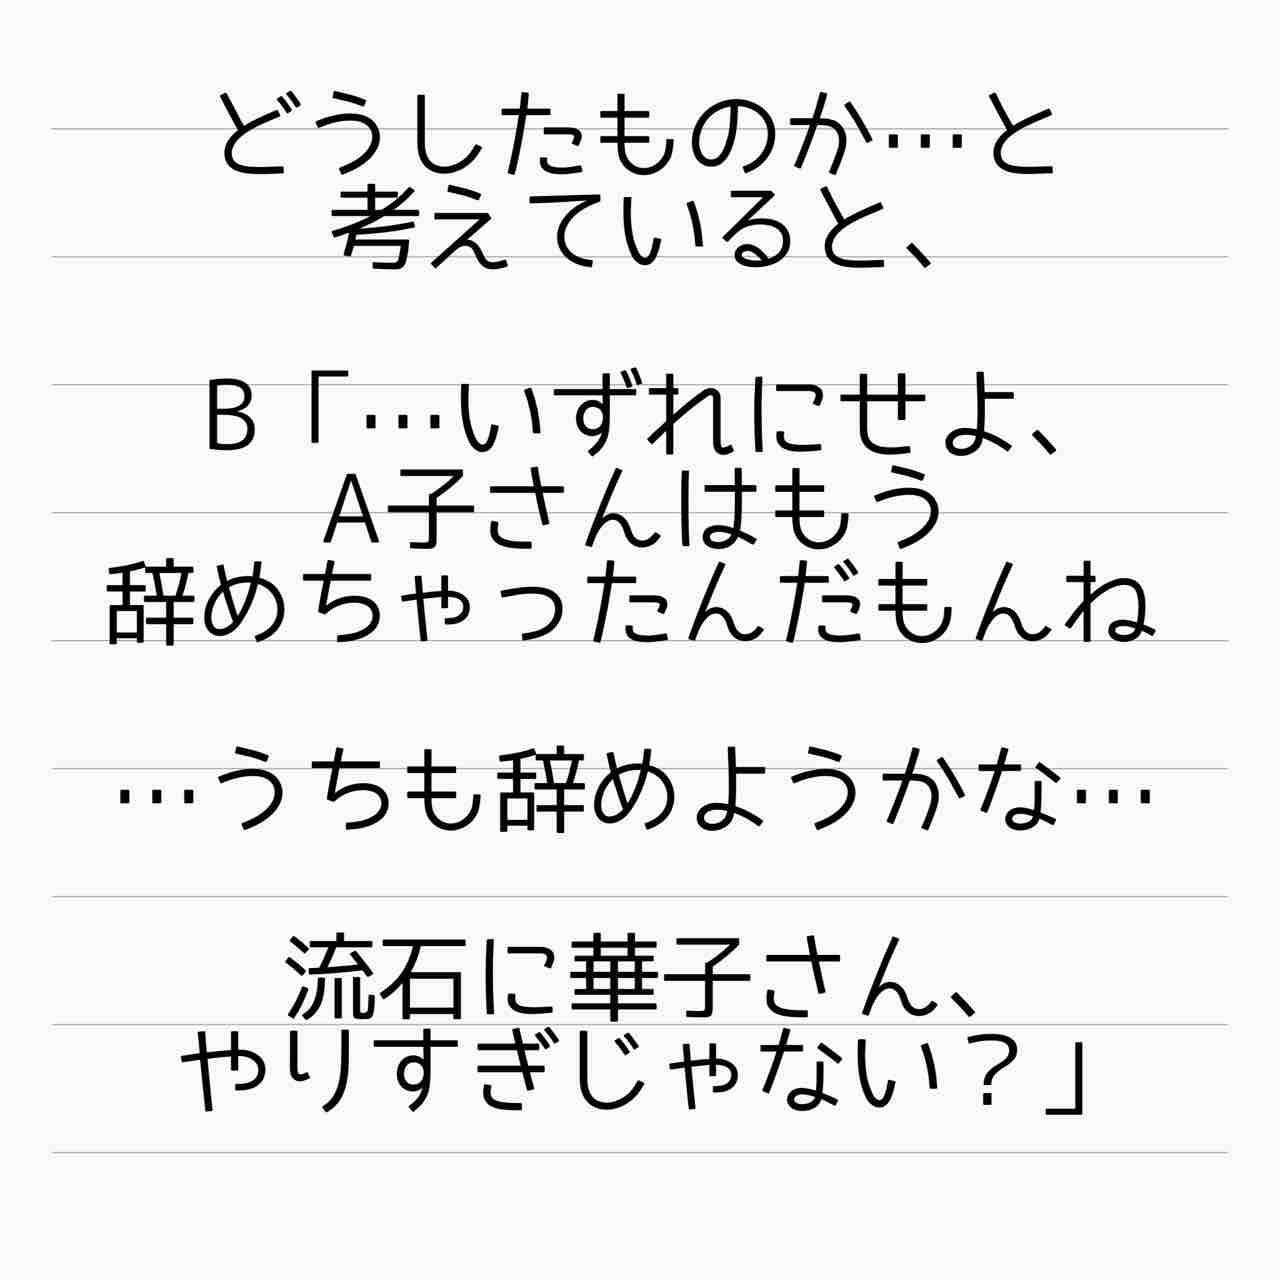 どうしたものか…と
考えていると、
B「…いずれにせよ、
A子さんはもう
辞めちゃったんだもんね
…うちも辞めようかな…
流石に華子さん、
やりすぎじゃない？」